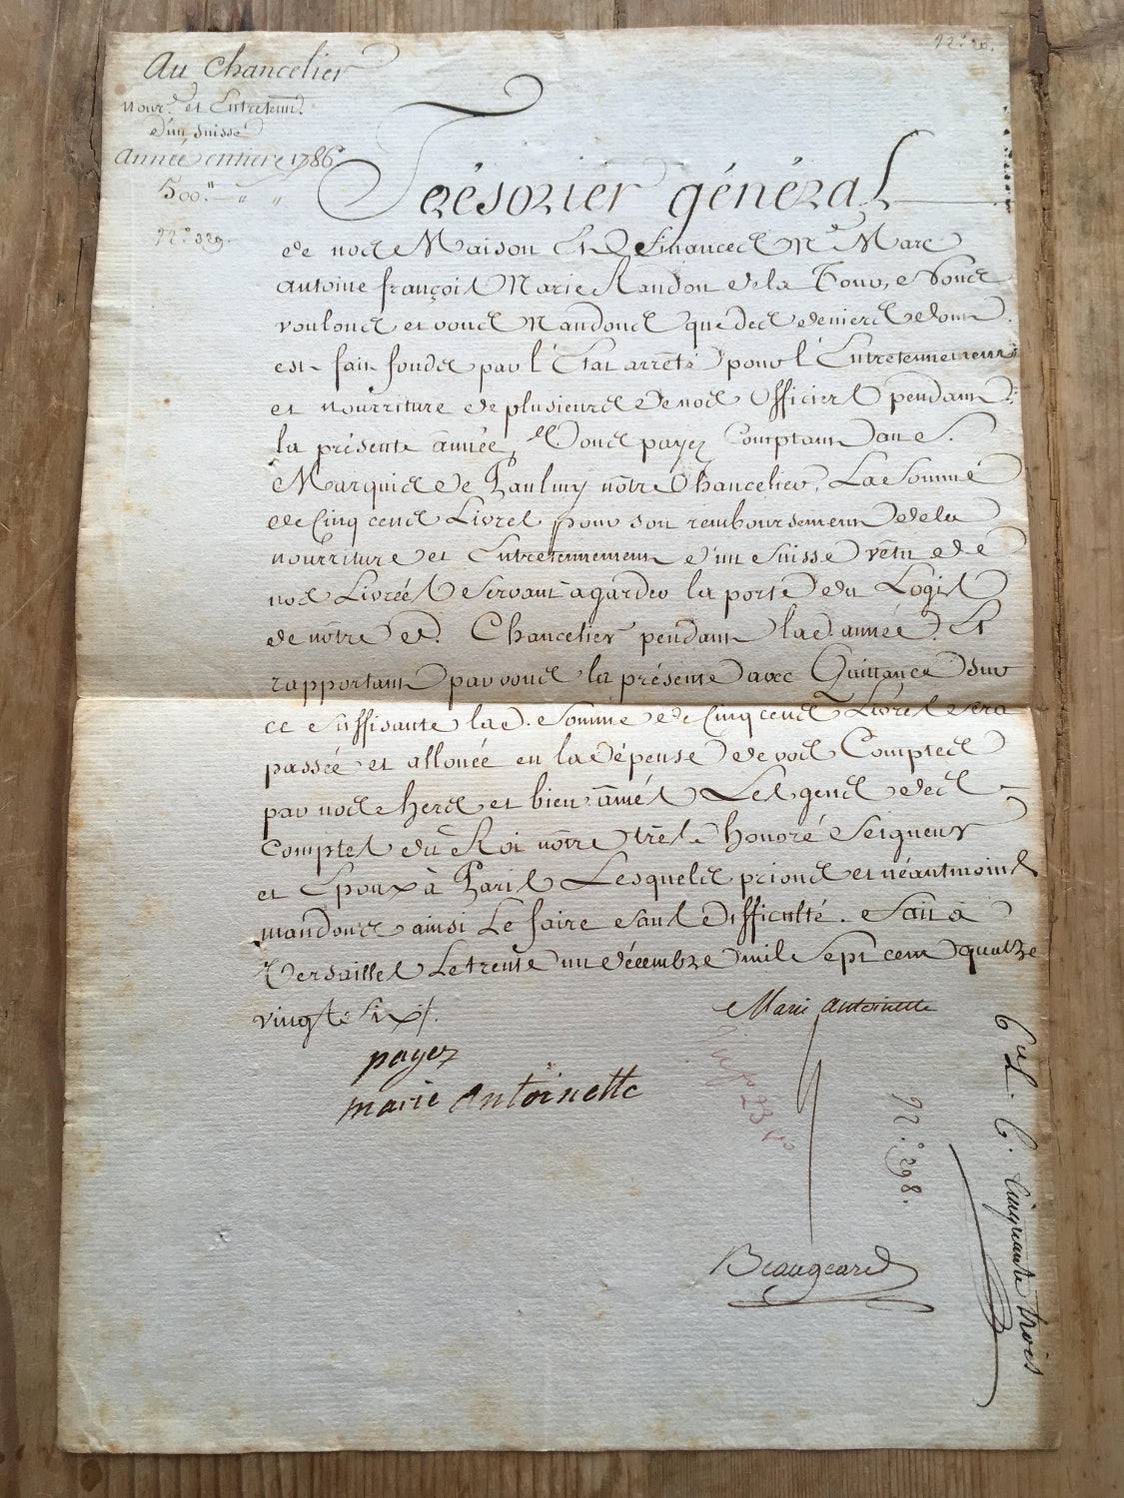 N.° 20.
Au Chancelier
nour.^re et Entretenm.^t
d'un Suisse
Année entiere 1786.
500.^tt — " "
N.° 329.
Trésorier général
de nos Maison Et Finances M.^e Marc
antoine françois Marie Randon de la Tour, Nous
voulons et vous Mandons que des deniers dont
est fait fonds par l'Etat arrêté pour l'Entretennement
et nourriture de plusieurs de nos Officiers pendant
la présente année, Vous payez Comptant au S.
Marquis de Paulmy nôtre Chancelier, La Somme
de Cinq cens Livres pour son remboursement de la
nourriture et Entretennement d'un Suisse vêtu de
nos Livrées Servant à garder la porte du Logis
de nôtre d. Chancelier pendant lad. année. Et
rapportant par vous la présente avec Quittance sur
ce Suffisante lad. Somme de Cinq cens Livres sera
passée et allouée en la dépense de vos Comptes
par nos chers et bien âmés Les gens des
Comptes du Roi nôtre très honoré Seigneur
et Epoux à Paris Lesquels prions et néantmoins
mandons ainsi Le faire sans Difficulté. Fait à
Versailles Le trente un décembre mil Sept cent quatre
vingt Six.
Marie Antoinette
payez
marie Antoinette
N.° 298.
Beaugeard
Cinquante trois